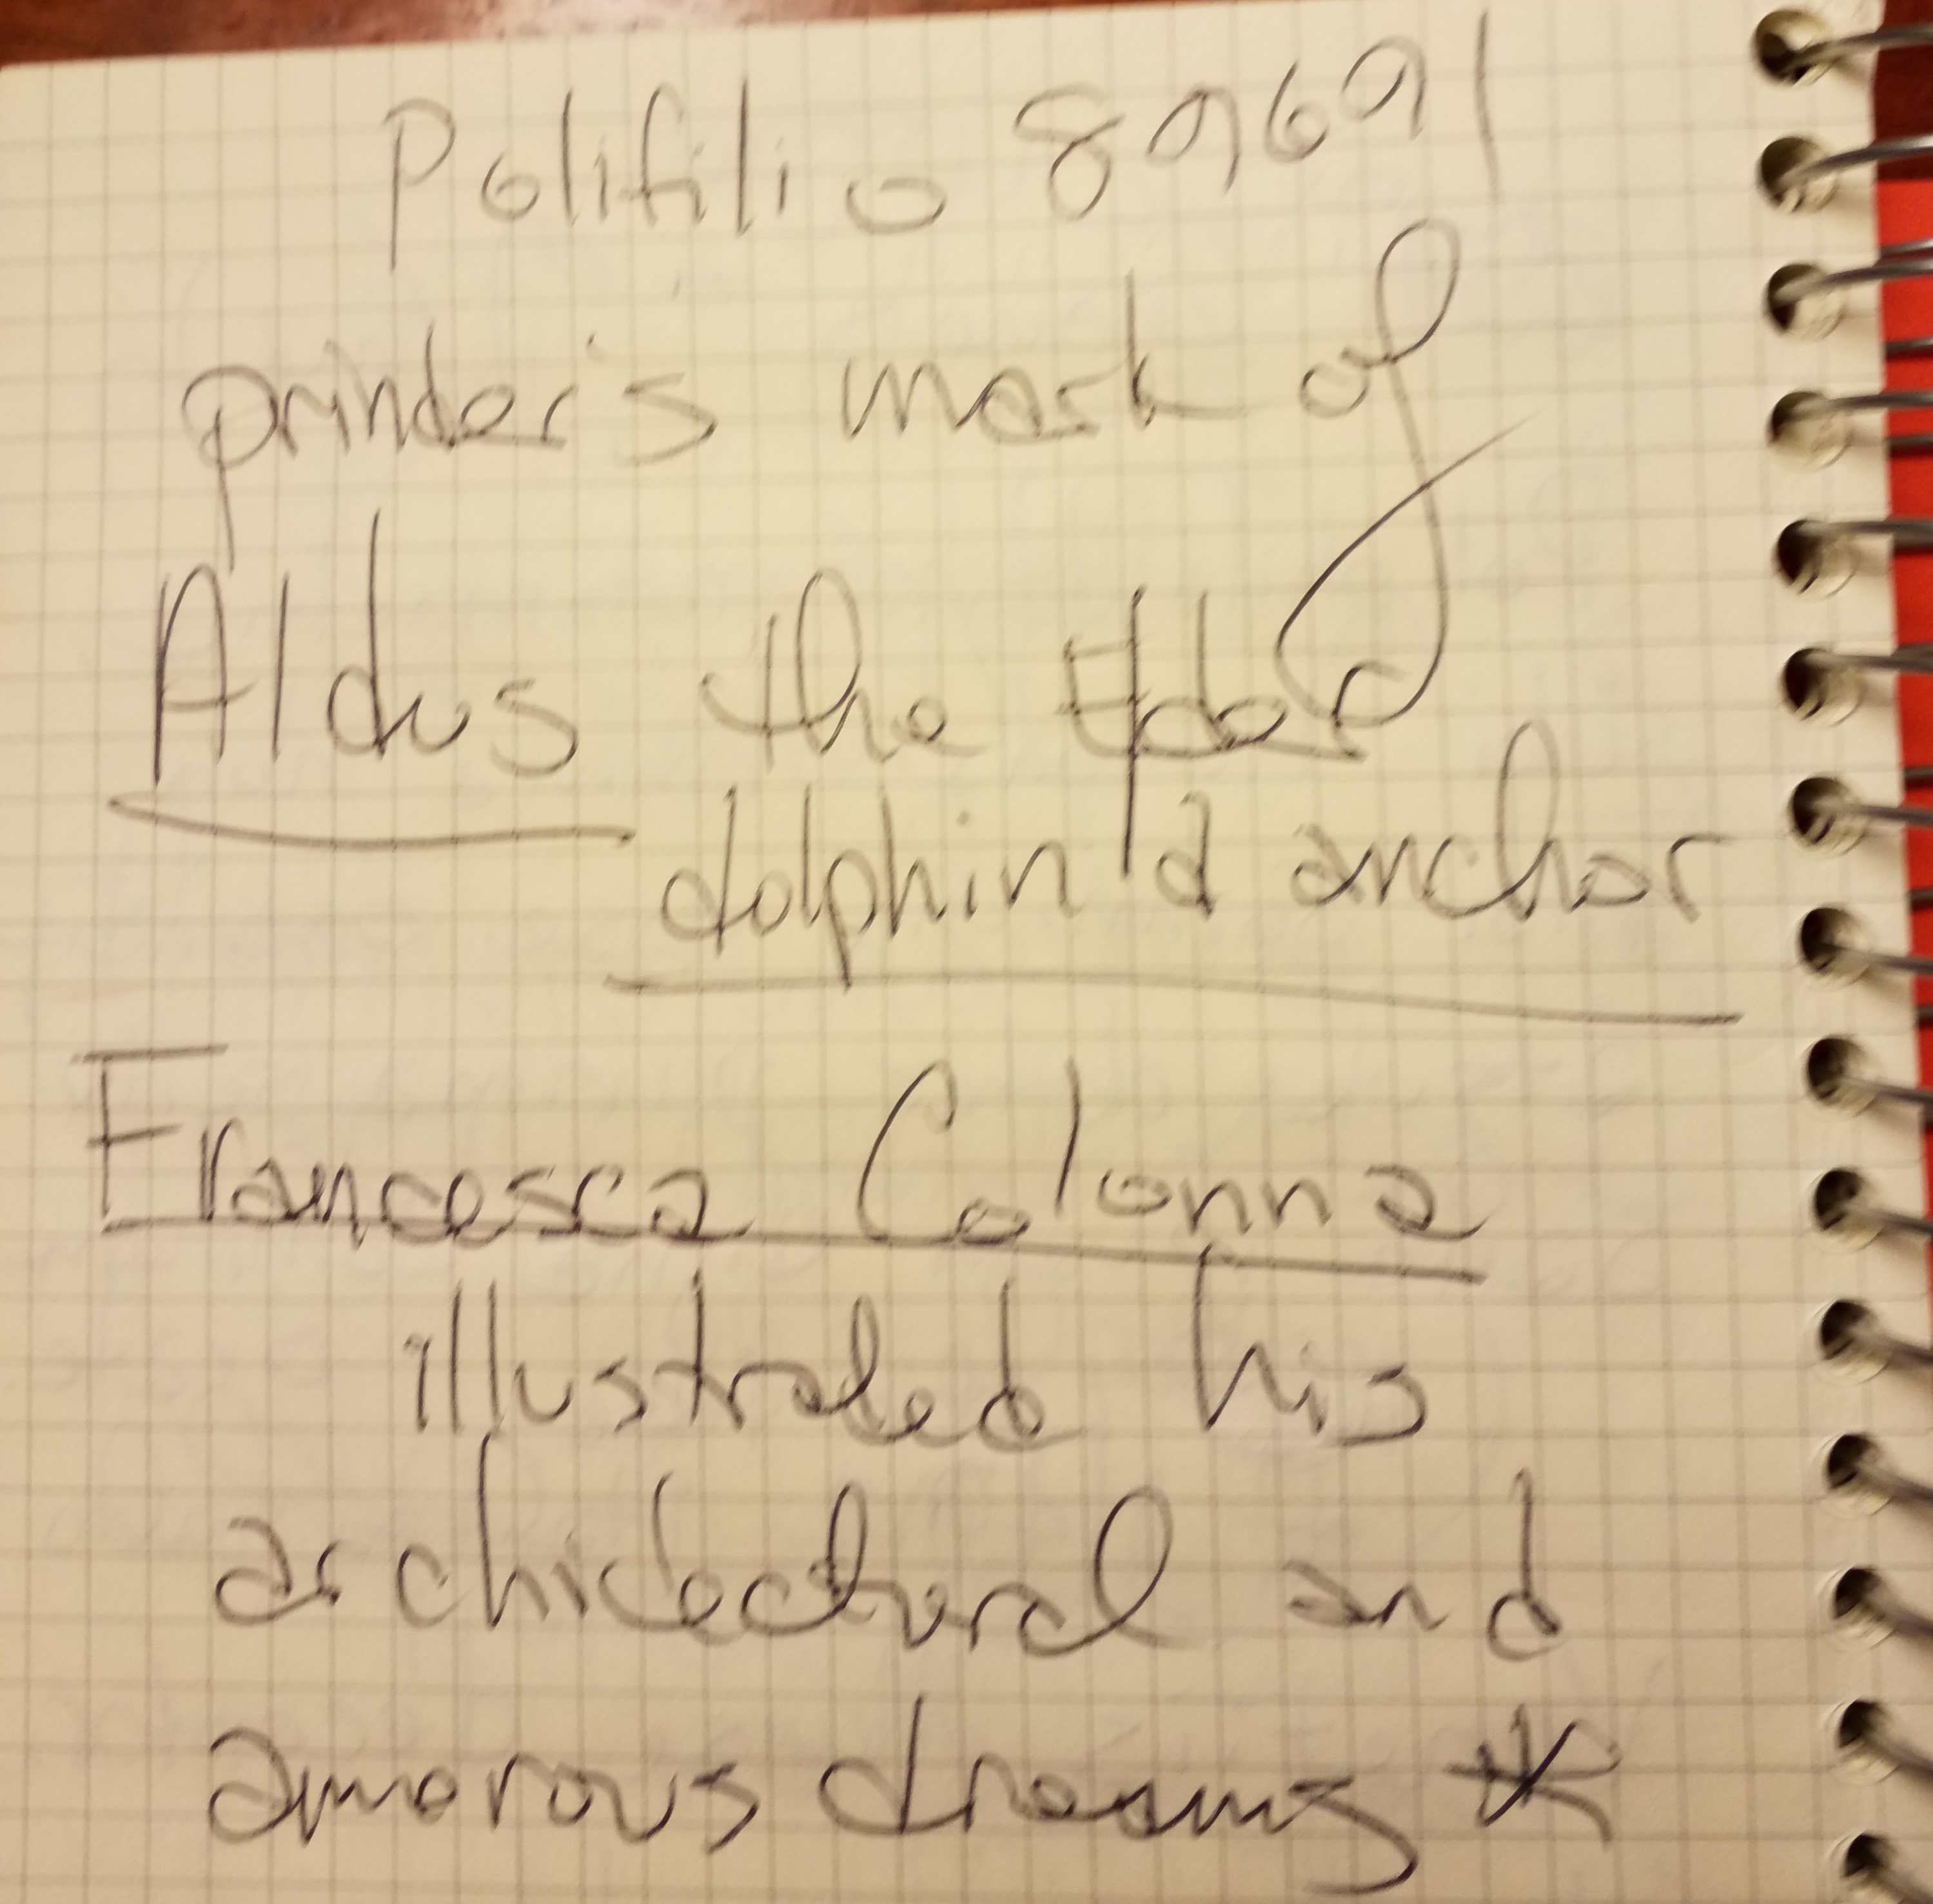 Polifilio 89691
printer's mark of
Aldus the Elder
dolphin & anchor
Francesca Colonna
illustrated his
architectural and
amorous dreams *